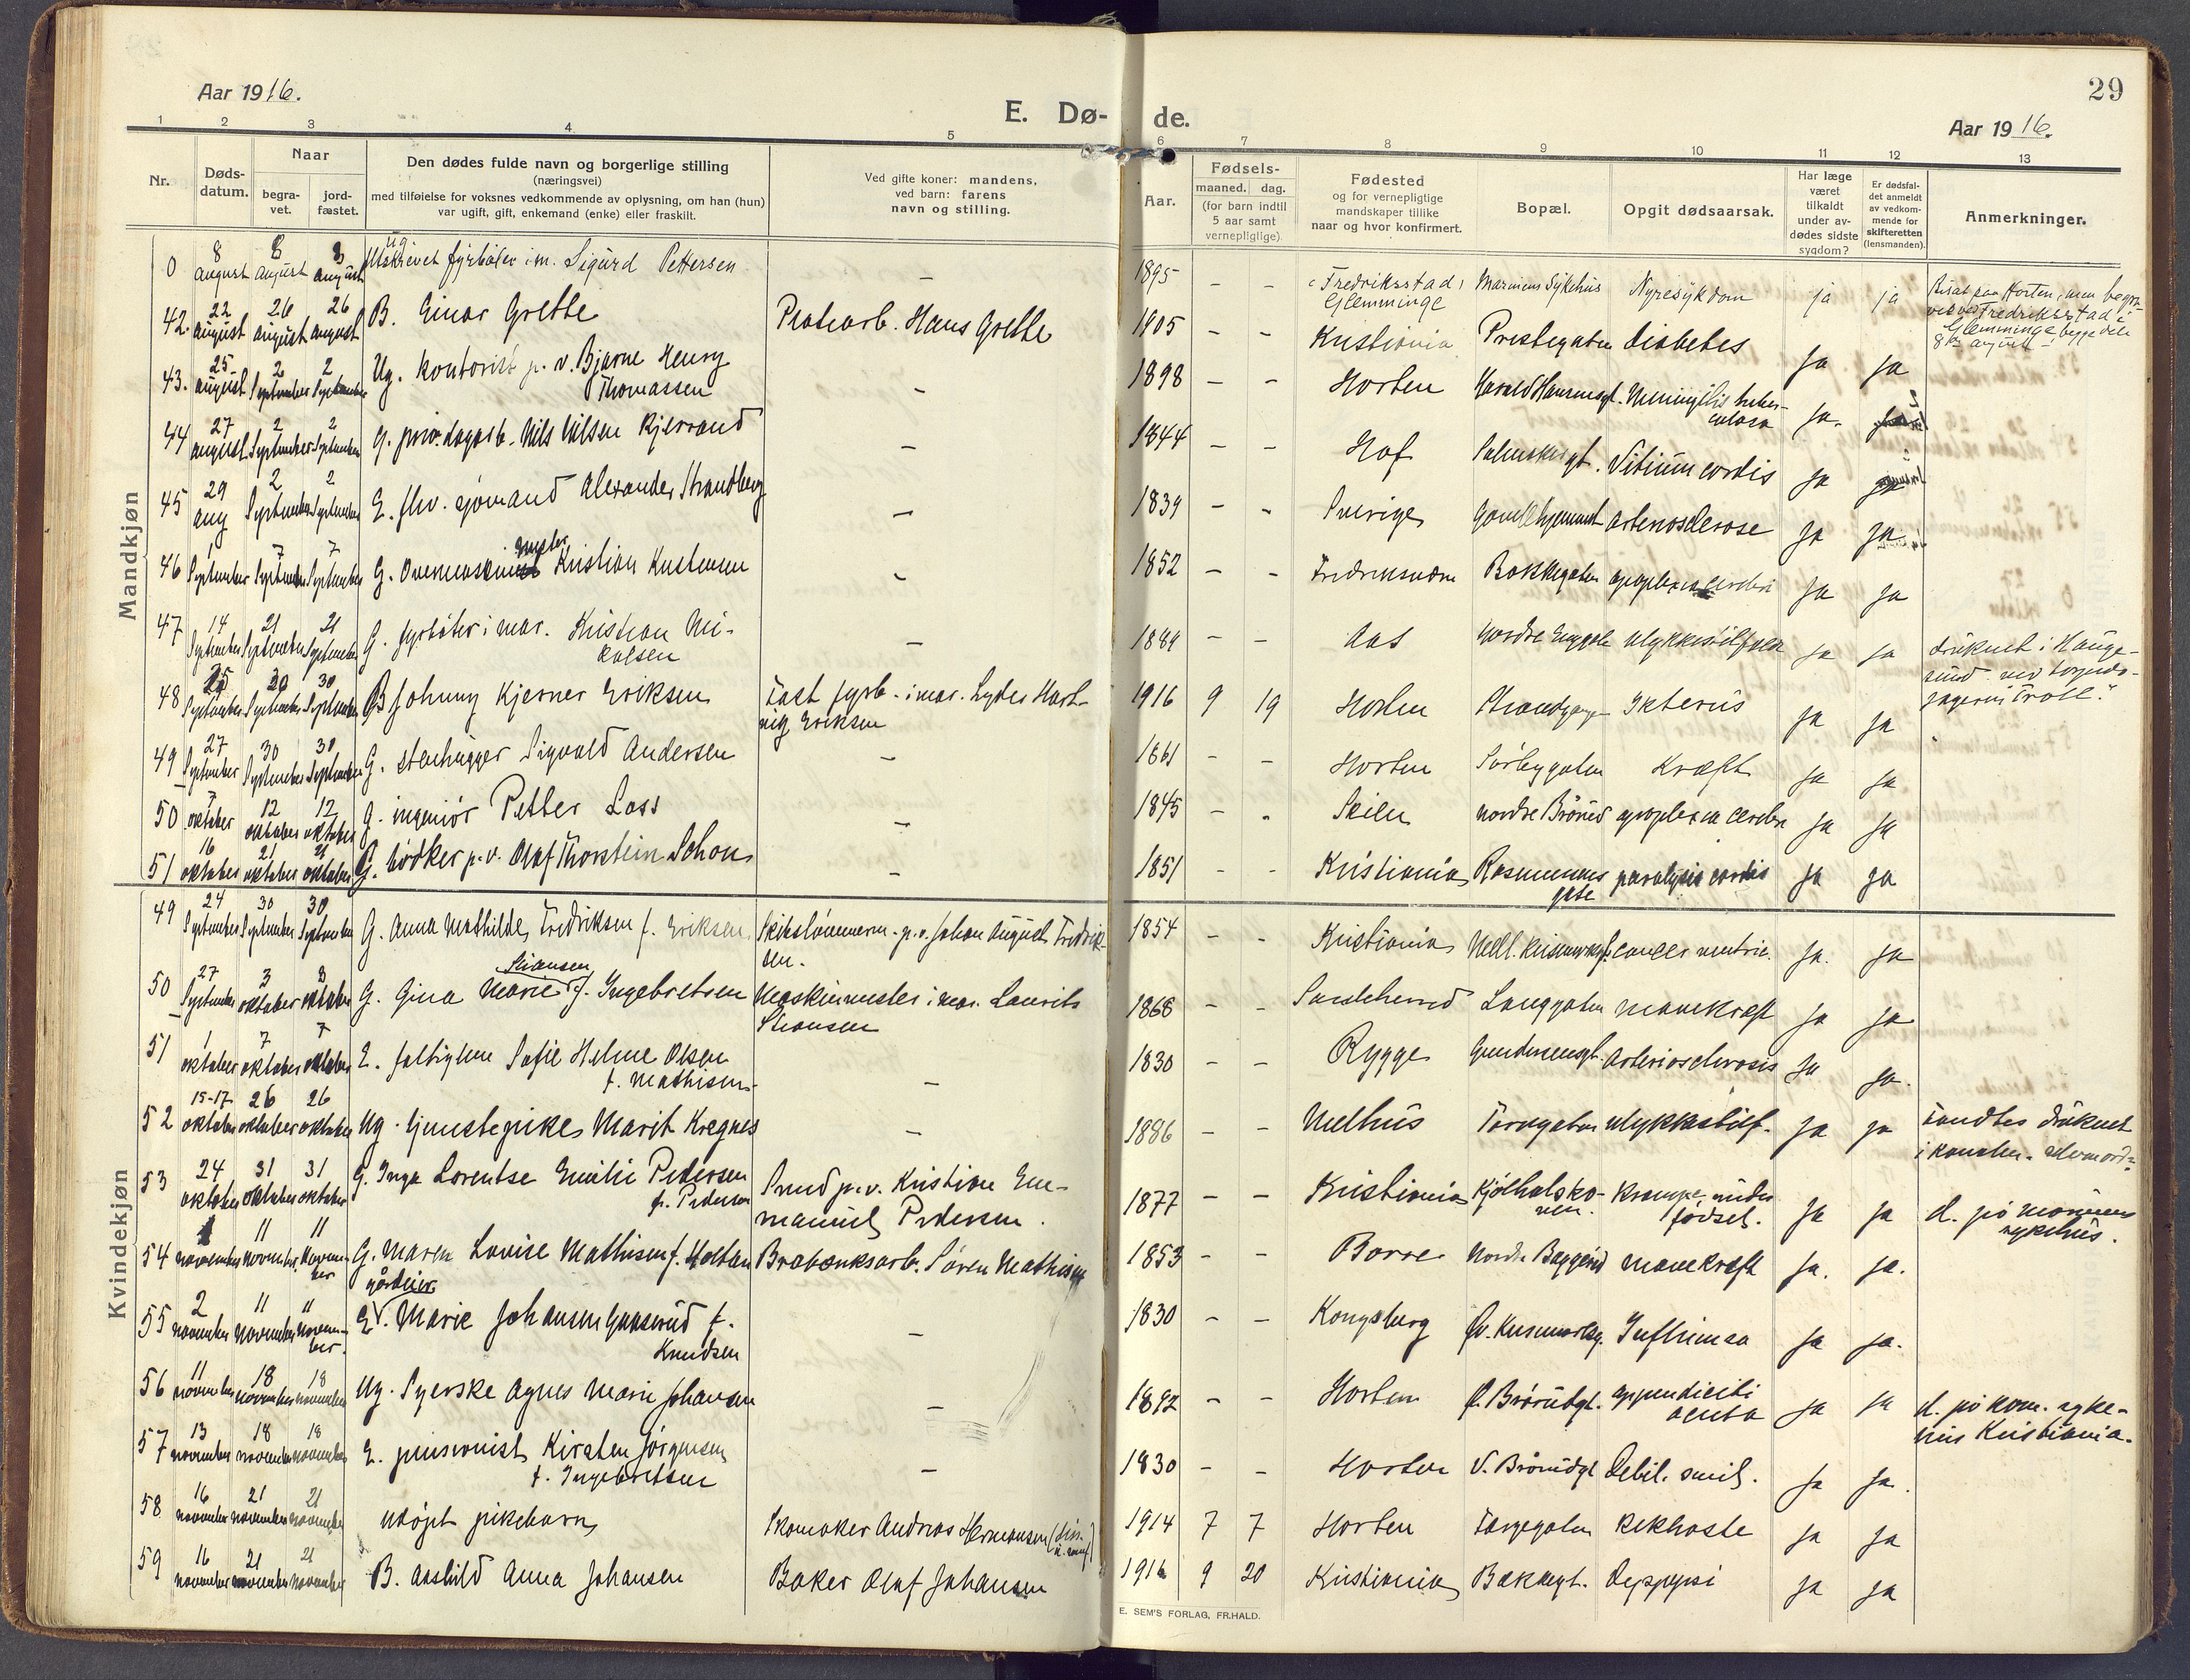 29
Aar 1916.
E. Dø-
de.
Aar 1916.
1 2 3 4 5 6 7 8 9 10 11 12 13
Nr.
Døds-
datum.
Naar
begra-
vet.
jord-
fæstet.
Den dødes fulde navn og borgerlige stilling
(næringsvei)
med tilføielse for voksnes vedkommende av oplysning, om han (hun)
var ugift, gift, enkemand (enke) eller fraskilt.
Ved gifte koner: mandens,
ved barn: farens
navn og stilling.
Aar.
Fødsels-
maaned. dag.
(for barn indtil
5 aar samt
vernepligtige).
Fødested
og for vernepligtige
mandskaper tillike
naar og hvor konfirmert.
Bopæl.
Opgit dødsaarsak.
Har læge
været
tilkaldt
under av-
dødes sidste
sygdom?
Er dødsfal-
det anmeldt
av vedkom-
mende for
skifteretten
(lensmanden).
Anmerkninger.
Mandkjøn
0 8 august 8 august 8 august Ug Utskrevet fyrbøter i m. Sigurd Pettersen – 1895 – – Fredriksstad, Glemminge Marinens Sykehus Nyresykdom ja ja
Horten, men begra-
vet ved Fredriksstad i
Glemminge begge dele
8de august
42. 22 august 26 august 26 august B. Einar Grette Hans Grette 1905 – – Kristiania Prestegaten diabetes Ja Ja
43. 25 august 2 September 2 September Ug. kontorist p. v. Bjarne Henry
Thomassen – 1898 – – Horten Harald Hansensgt. Meningitis tuber-
culosa Ja.
44 27 august 2 September 2 September G. Nils Nilsen – 1844 – – Hof Vitium cordis Ja
45 29 aug 2 September 2 September E. fhv. sjømand Alexander Strandberg – 1839 – – Sverige Gamlehjemmet Arteriosclerose Ja Ja
46 1 September 7 September 7 September G. Overmaskinmester Kristian Kristensen – 1852 – – Fredriksværn Bakkegaten apoplexia cerebri Ja Ja
47 14 September 21 September 21 September G. fyrbøter i mar. Kristian Ni-
kolsen – 1889 – – Aas Nordre Enggate Ulykkestilfælde Ja Ja druknet i Hauge-
sund ved torpedo-
jageren "Troll".
48 25 September 30 September 30 September B Johnny Kjerner Eriksen Fast fyrb. i mar. Lyder Hart-
vig Eriksen 1916 9 19 Horten Strandgangen Ikterus Ja Ja
49 27 September 30 September 30 September G. stenhugger Sigvald Andersen – 1861 – – Horten Sørbygaten Kræft Ja Ja
50 7 oktober 12 oktober 12 oktober G. ingeniør Petter Lass – 1845 – – Skien Nordre Brårud apoplexia cerebri Ja Ja
51 16 oktober 21 oktober 21 oktober G. bødker p. v. Olaf Thorstein Schou – 1851 – – Kristiania Rasmussens
gate paralysis cordis Ja Ja
Kvindekjøn
49 24 September 30 September 30 September G. Anna Mathilde Fredriksen f. Eriksen Skibstømmerm. p. v. Johan August Fredrik-
sen. 1854 – – Kristiania cancer ventric. Ja. Ja
50 27 September 3 oktober 3 oktober G. Gina Marie Stiansen f. Ingebretsen Maskinmester i mar. Laurits
Stiansen 1868 – – Sandeherred Langgaten mavekræft Ja Ja
51 1 oktober 7 oktober 7 oktober E. fattiglem Sofie Helene Olsen
f. Mathisen – 1830 – – Rygge Arteriosclerosis Ja Ja.
52 15-17 oktober 26 oktober 26 oktober Ug. tjenestepike Marit Kregnes – 1886 – – Melhus Torvgaten ulykkestilf. Ja Ja fandtes druknet
i kanalen.
53 24 oktober 31 oktober 31 oktober G. Inga Lorentse Emilie Pedersen
f. Pedersen Smed p. v. Kristian Em-
manuel Pedersen. 1877 – – Kristiania Krampe under
fødsel. Ja Ja d. på marinens
sykehus.
54 1 november 11 november 11 november G. Maren Lovise Mathisen f. Holtan Søren Mathisen 1853 – – Borre Nordre Baggerud Mavekræft Ja. Ja.
55 2 november 11 november 11 november gårdeier E. Marie Johansen f.
Knudsen – 1830 – – Kongsberg Influensa Ja Ja.
56 11 november 18 november 18 november Ug. Syerske Agnes Marie Johansen – 1892 – – Horten Ø. Brårudgt. Appendiciti
acuta Ja Ja d. på kom. syke-
hus Kristiania.
57 13 november 18 november 18 november E. pensionist Kirsten Jørgensen
f. Ingebretsen – 1830 – – Horten V. Brårudgt. Debil. senil. Ja Ja.
58 16 november 21 november 21 november udøpt pikebarn Skomaker Andreas Hermansen 1914 7 7 Horten Kikhoste Ja Ja
59 16 november 21 november 21 november B. Aashild Anna Johansen Baker Olaf Johansen 1916 9 20 Kristiania Bakkegt. Dyspepsi Ja Ja
E. SEM'S FORLAG, FR.HALD.